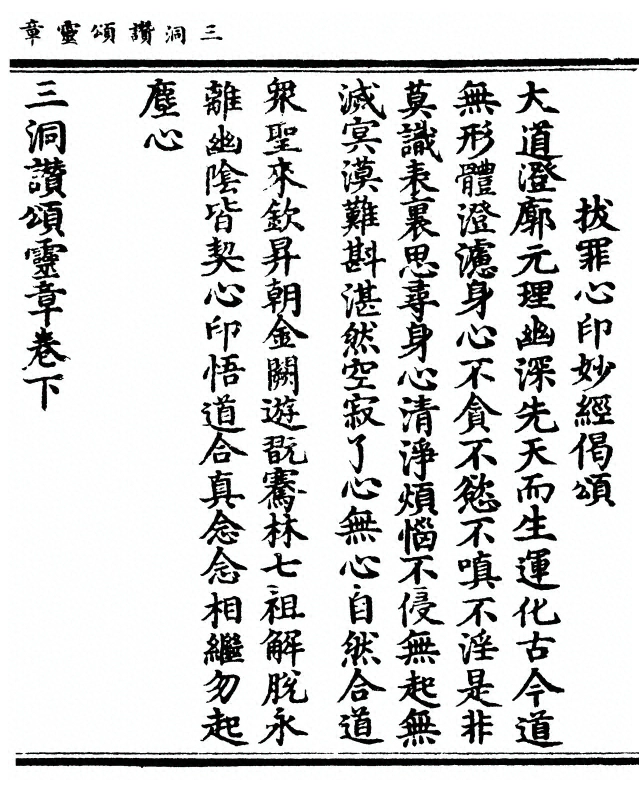 三洞讚頌靈章
拔罪心印妙經偈頌
大道澄廓元理幽深先天而生運化古今道
無形體澄濾身心不貪不慾不嗔不淫是非
莫識表裏思尋身心清淨煩惱不侵無起無
滅冥漠難斟湛然空寂了心無心自然合道
衆聖來欽昇朝金闕遊翫騫林七祖解脫永
離幽陰皆契心印悟道合真念念相繼勿起
塵心
三洞讚頌靈章卷下